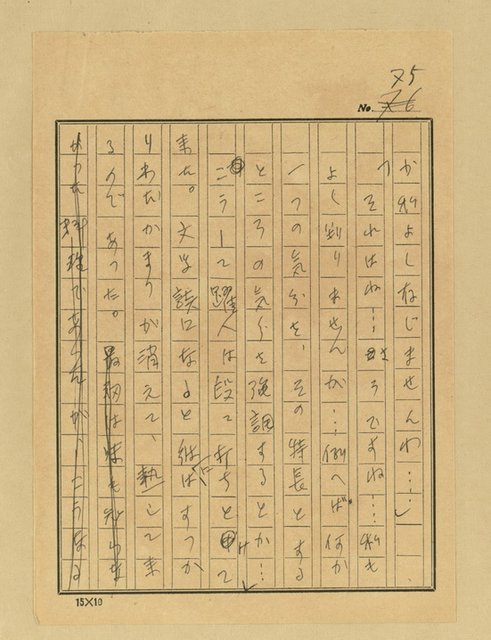 75
No. 76
か私よくなじませんわ……」
「それはね……さうですね……私も
よく判りませんが…例へば、何か
一つの気分を、その特長とする
ところの気分を強調するとか…
こうして躍人は段々打ちとけて
来た。文学談になると彼はすっか
りわだかまりが消えて、熱して来
るのであった。最初は妹も知らな
かった 態であったが、こうなる
15×10